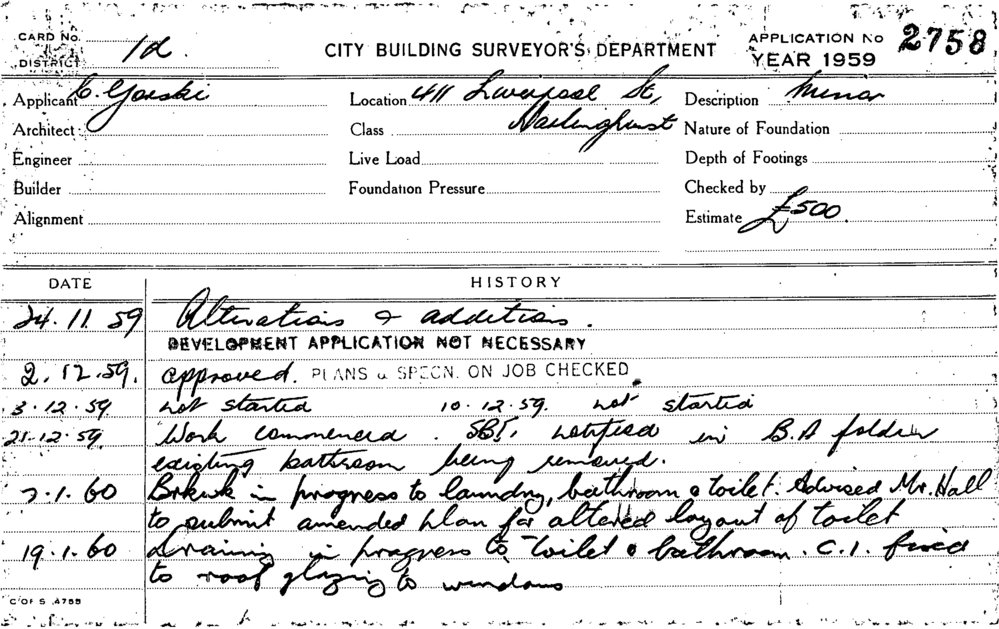 CARD No. 1d. CITY BUILDING SURVEYOR'S DEPARTMENT APPLICATION No 2758
DISTRICT YEAR 1959
Applicant C. Gorski Location 411 Liverpool St, Description Minor
Architect Class Darlinghurst Nature of Foundation
Engineer Live Load Depth of Footings
Builder Foundation Pressure Checked by
Alignment Estimate £500.
DATE HISTORY
24.11.59 Alterations & additions.
DEVELOPMENT APPLICATION NOT NECESSARY
2.12.59. approved. PLANS & SPECN. ON JOB CHECKED.
3.12.59 not started 10.12.59. not started
21.12.59. Work commenced. notified in B.A folder
existing bathroom being removed.
7.1.60 Brkwk in progress to laundry, bathroom & toilet. Advised Mr. Hall
to submit amended plan for altered layout of toilet
19.1.60 in progress to toilet & bathroom. C.I. fixed
to roof glazing to windows
C OF S 4755